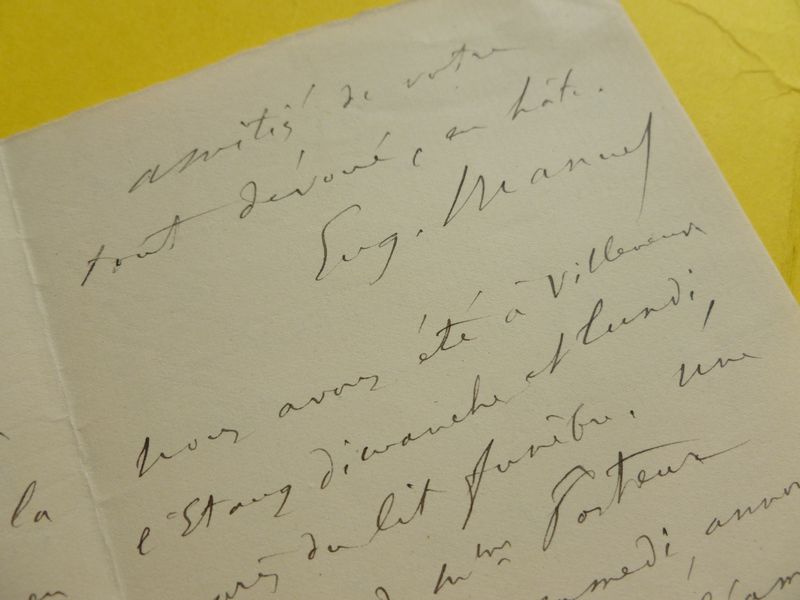 amitié de votre
tout dévoué, en hâte.
Eug. Manuel
nous avons été à Villeneuve
l'Etang dimanche et lundi,
du lit funèbre. une
Mme Pasteur
la
en